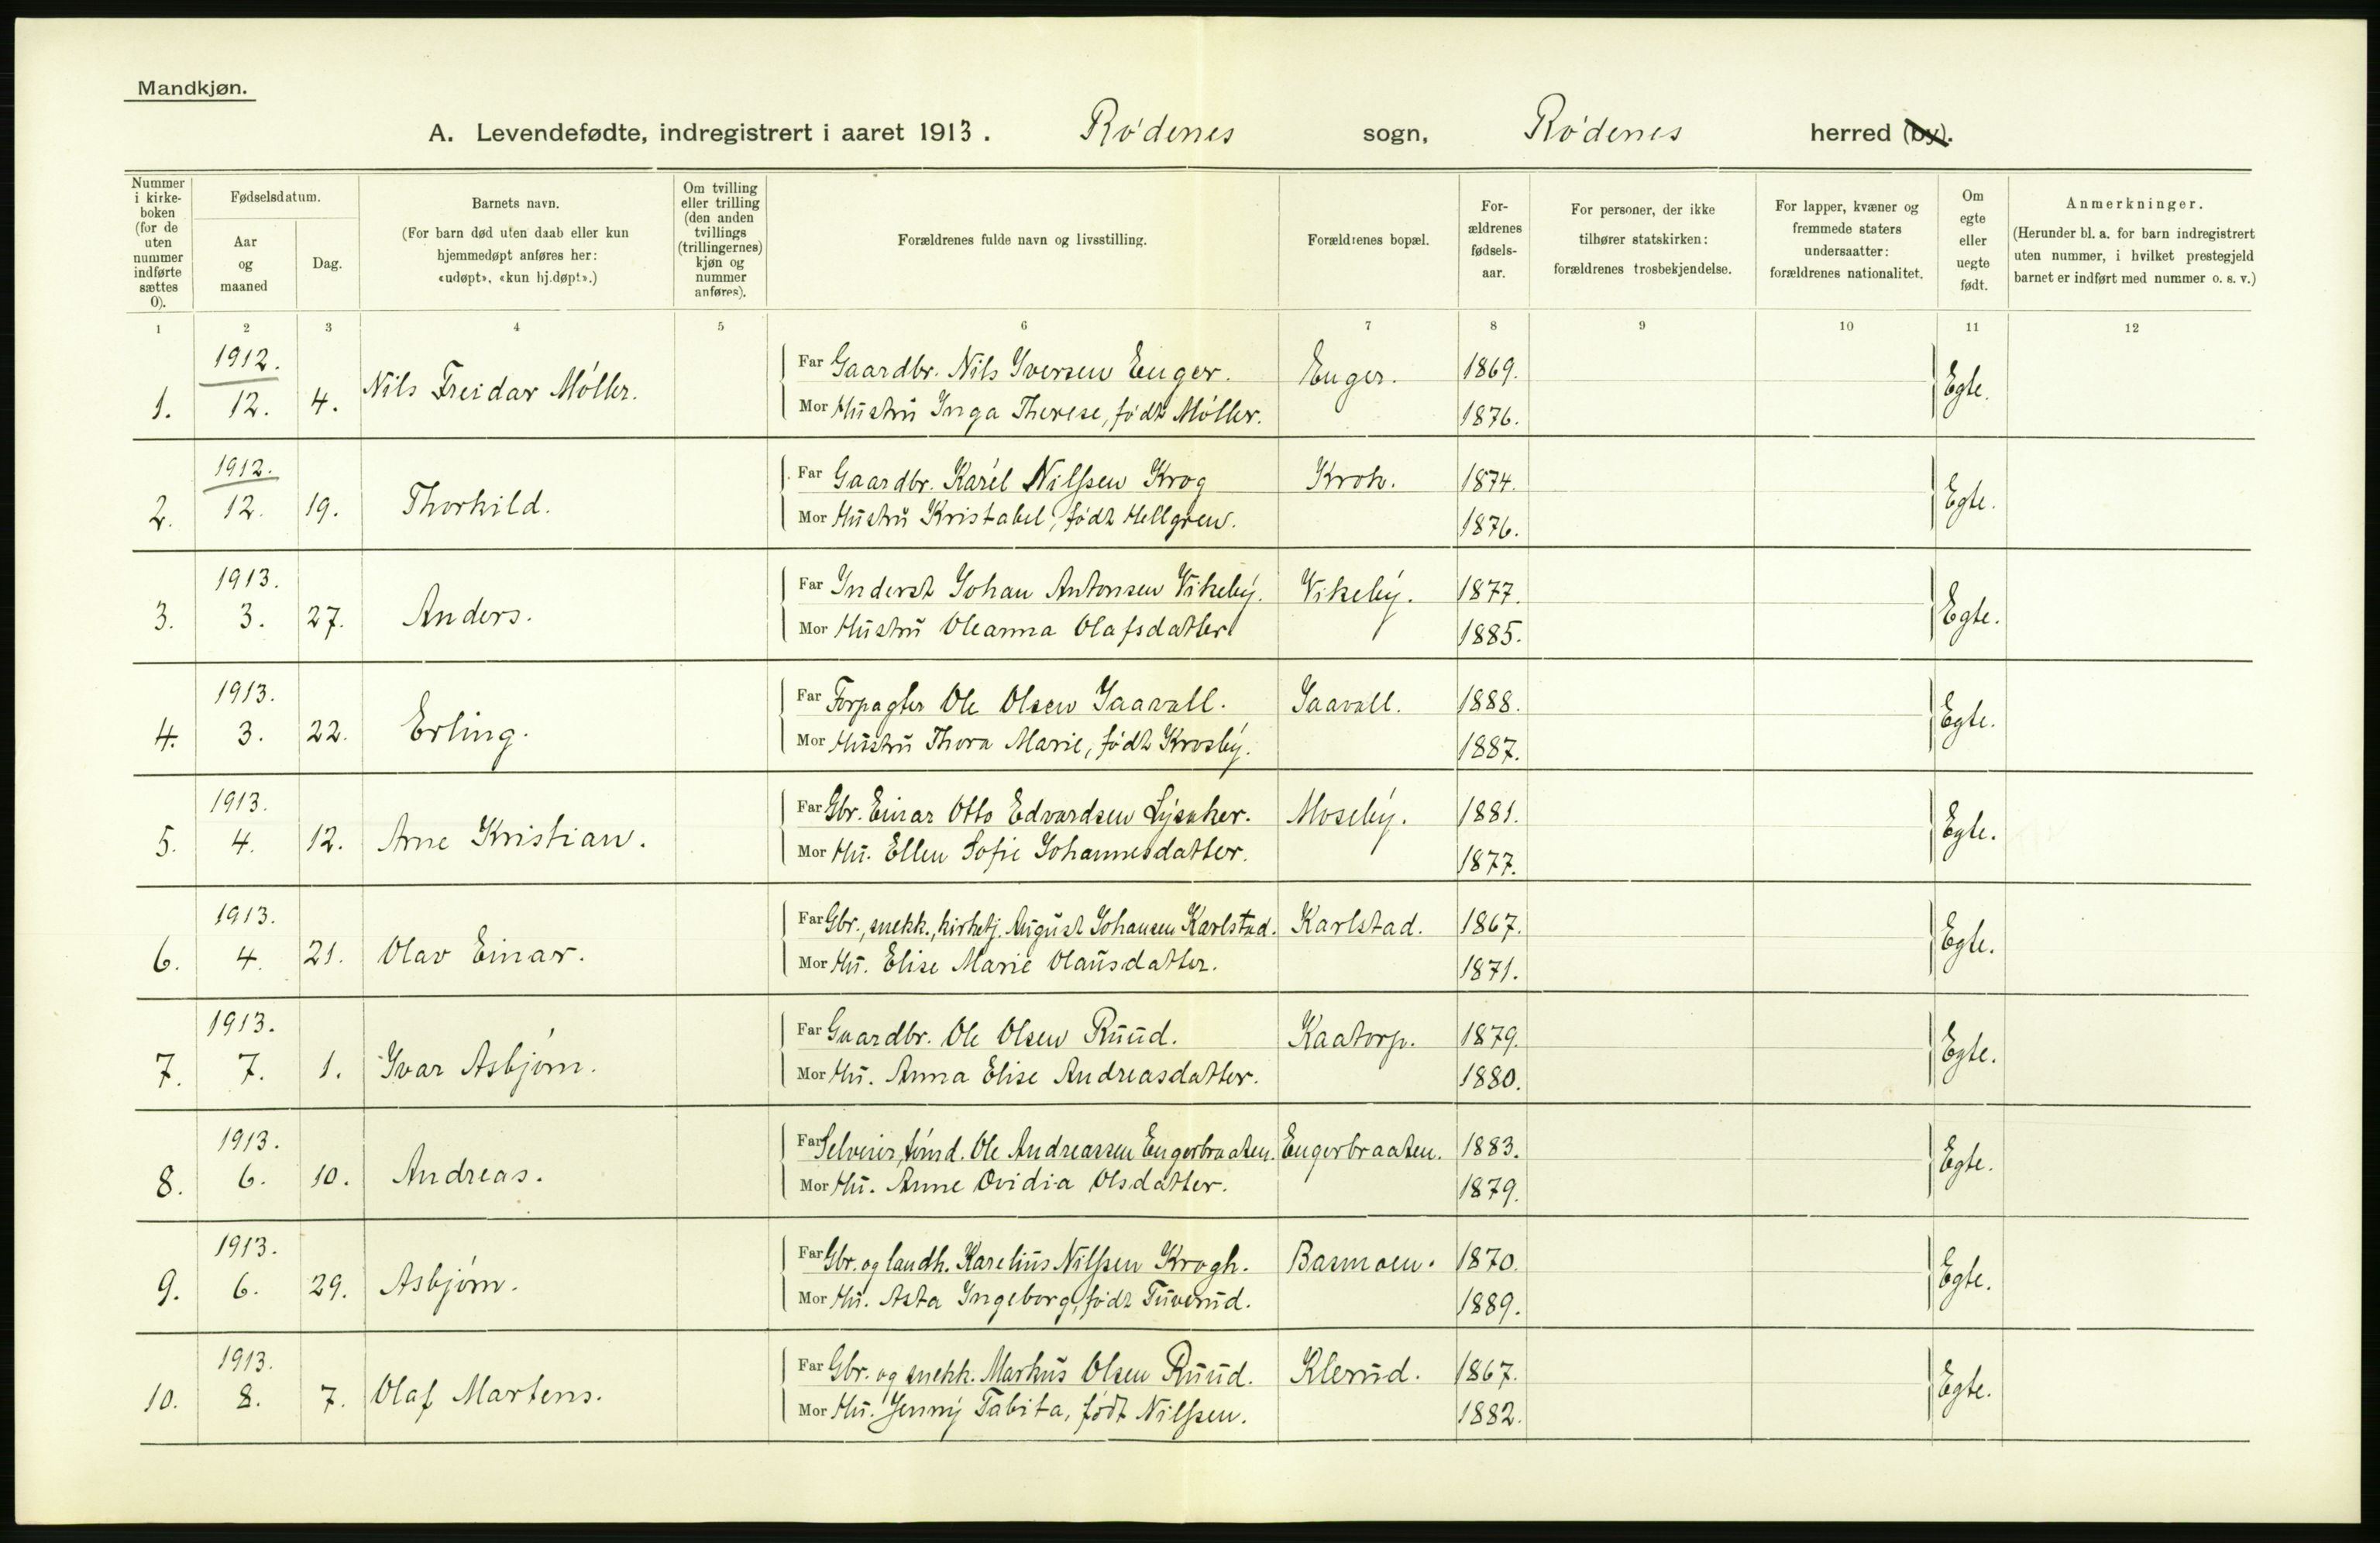 Mandkjøn.
A. Levendefødte, indregistrert i aaret 1913. Rødenes sogn, Rødenes herred (by).
Nummer i kirkeboken (for de uten nummer indførte sættes 0).
Fødselsdatum.
Aar og maaned
Dag.
Barnets navn.
(For barn død uten daab eller kun hjemmedøpt anføres her: «udøpt», «kun hj.døpt».)
Om tvilling eller trilling (den anden tvillings (trillingernes) kjøn og nummer anføres).
Forældrenes fulde navn og livsstilling.
Forældrenes bopæl.
Forældrenes fødselsaar.
For personer, der ikke tilhører statskirken: forældrenes trosbekjendelse.
For lapper, kvæner og fremmede staters undersaatter: forældrenes nationalitet.
Om egte eller uegte født.
Anmerkninger.
(Herunder bl. a. for barn indregistrert uten nummer, i hvilket prestegjeld barnet er indført med nummer o. s. v.)
1 2 3 4 5 6 7 8 9 10 11 12
1912. Far Gaardbr. Nils Iversen Enger. Enger. 1869.
1. 12. 4. Nils Freidar Møller. Mor Hustru Inga Therese, født Møller. 1876. Egte.
1912. Far Gaardbr. Karel Nilssen Krog Krok. 1874.
2. 12. 19. Thorhild. Mor Hustru Kristabel, født Hellgren. 1876. Egte.
1913. Far Inderst Johan Antonsen Vikeby. Vikeby. 1877.
3. 3. 27. Anders. Mor Hustru Oleanna Olafsdatter 1885. Egte.
1913. Far Forpagter Ole Olsen Taavall. Taavall. 1888.
4. 3. 22. Erling. Mor Hustru Thora Marie, født Krosby. 1887. Egte.
1913. Far Gbr. Einar Otto Edvardsen Lysaker. Moseby. 1881.
5. 4. 12. Arne Kristian. Mor Hu. Ellen Sofie Johannesdatter. 1877. Egte.
1913. Far Gbr., snekk., kirketj. August Johansen Karlstad. Karlstad. 1867.
6. 4. 21. Olav Einar. Mor Hu. Elise Marie Olausdatter. 1871. Egte.
1913. Far Gaardbr. Ole Olsen Ruud. Kaatorp. 1879.
7. 7. 1. Ivar Asbjørn. Mor Hu. Anna Elise Andreasdatter. 1880. Egte.
1913. Far Selveier, tømd. Ole Andreassen Engerbraaten. Engerbraaten. 1883.
8. 6. 10. Andreas. Mor Hu. Anne Ovidia Olsdatter. 1879. Egte.
1913. Far Gbr. og landh. Karelius Nilssen Krogh. Basmoen. 1870.
9. 6. 29. Asbjørn. Mor Hu. Asta Ingeborg, født Tuverud. 1889. Egte.
1913. Far Gbr. og snekk. Markus Olsen Ruud. Klerud. 1867.
10. 8. 7. Olaf Martens. Mor Hu. Jenny Tabita, født Nilssen. 1882. Egte.